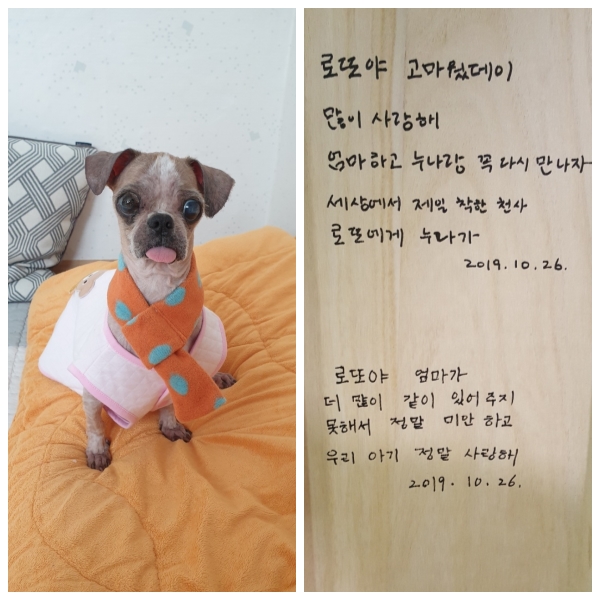 로또야 고마웠데이
많이 사랑해
엄마하고 누나랑 꼭 다시 만나자
세상에서 제일 착한 천사
로또에게 누나가
2019.10.26.
로또야 엄마가
더 많이 같이 있어주지
못해서 정말 미안 하고
우리 아기 정말 사랑해
2019. 10. 26.